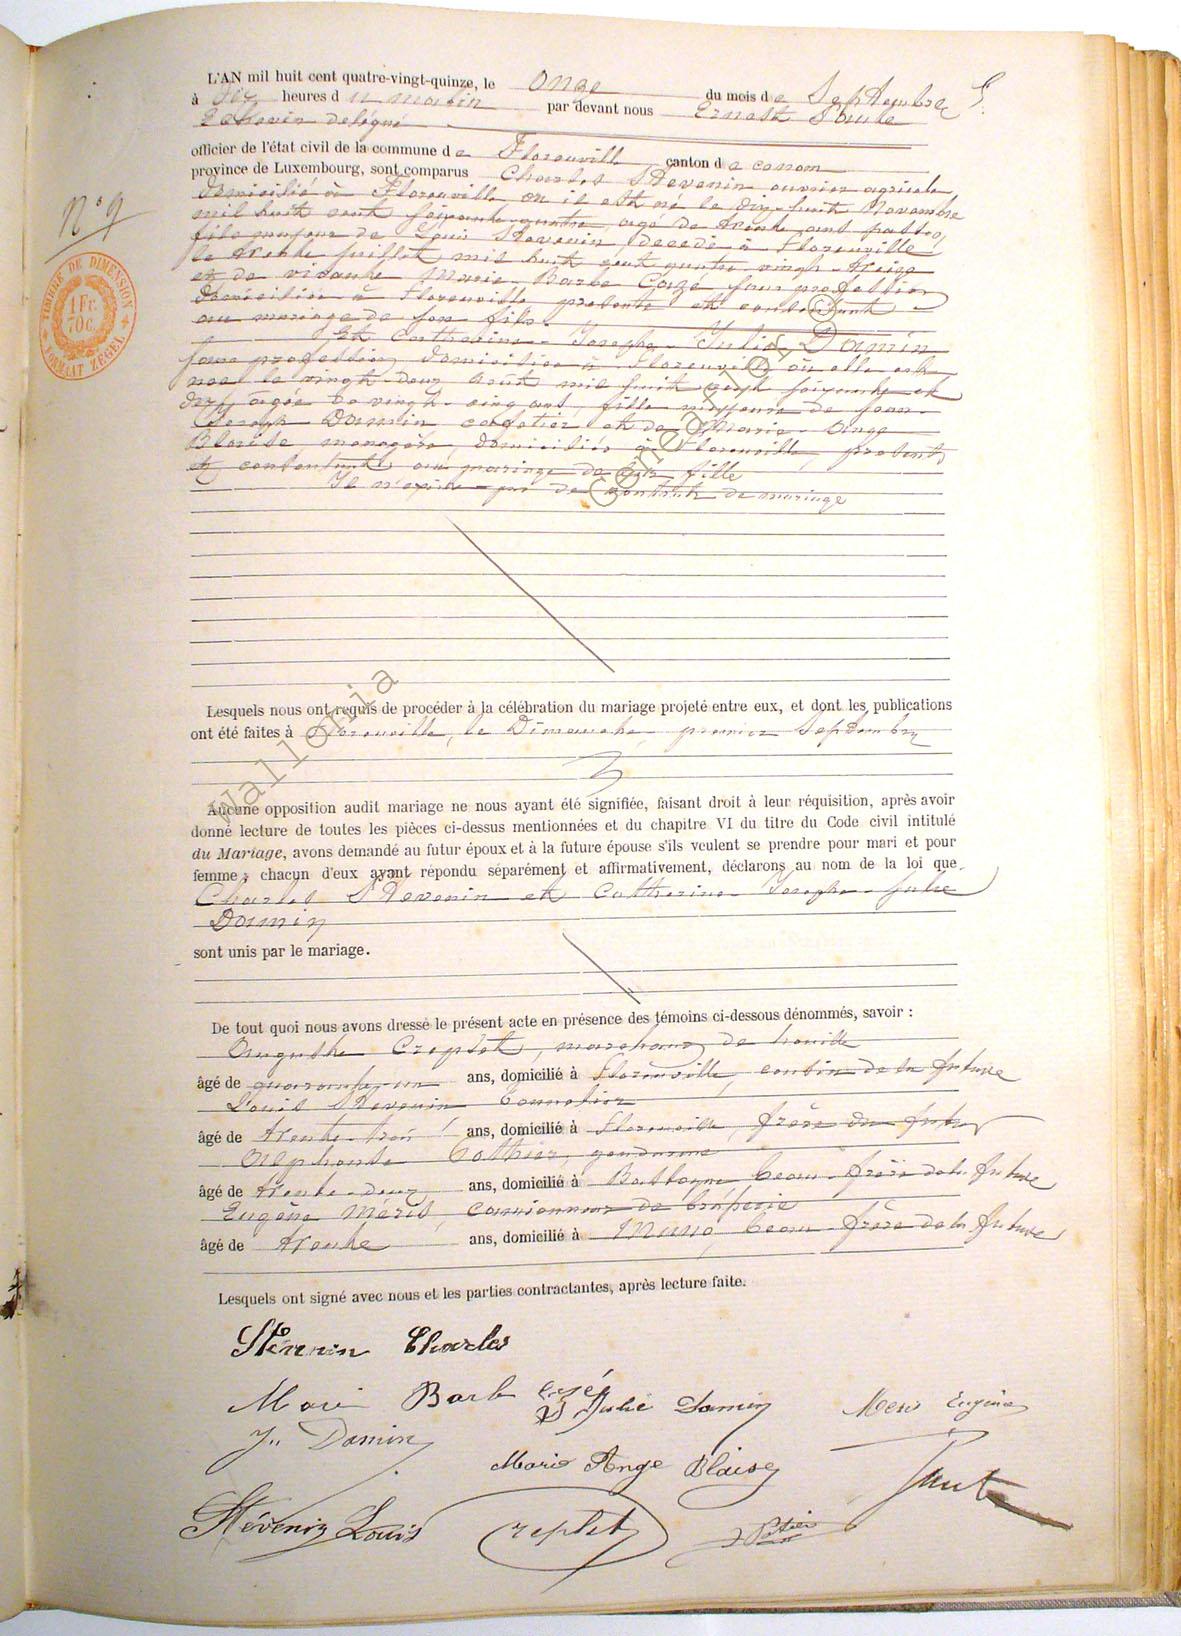 L'AN mil huit cent quatre-vingt-quinze, le onze du mois de Septembre
à dix heures du matin par devant nous Ernest
Echevin délégué
officier de l'état civil de la commune de Florenville canton de
province de Luxembourg, sont comparus Charles Stevenin ouvrier agricole
domicilié à Florenville, où il est né le dix-huit Novembre
mil huit cent soixante-quatre, agé de trente ans passés,
fils majeur de Louis Stevenin décédé à Florenville
le trente juillet mil huit cent quatre-vingt-treize
et de vivante Marie Barbe Cozé sans profession
domiciliée à Florenville, présente et consentant
au mariage de son fils.
Et Catherine-Josephe-Julie Damin
sans profession, domiciliée à Florenville où elle est
née le vingt-deux août mil huit cent soixante et
dix, agée de vingt-cinq ans, fille majeure de Jean-
Joseph Damin cafetier et de Marie-Ange
Blaise menagère, domiciliés à Florenville, présents
et consentants au mariage de leur fille
Il n'existe pas de contrat de mariage
N° 9
TIMBRE DE DIMENSION
1 Fr.
70 c.
FORMAAT ZEGEL
Lesquels nous ont requis de procéder à la célébration du mariage projeté entre eux, et dont les publications
ont été faites à Florenville, le Dimanche premier Septembre
Aucune opposition audit mariage ne nous ayant été signifiée, faisant droit à leur réquisition, après avoir
donné lecture de toutes les pièces ci-dessus mentionnées et du chapitre VI du titre du Code civil intitulé
du Mariage, avons demandé au futur époux et à la future épouse s'ils veulent se prendre pour mari et pour
femme ; chacun d'eux ayant répondu séparément et affirmativement, déclarons au nom de la loi que
Charles Stevenin et Catherine-Josephe-Julie
Damin
sont unis par le mariage.
De tout quoi nous avons dressé le présent acte en présence des témoins ci-dessous dénommés, savoir :
Auguste Creplet, marchand de houille
âgé de quarante-un ans, domicilié à Florenville, cousin de la future
Louis Stevenin Tonnelier
âgé de trente-trois ans, domicilié à Florenville, frère du futur
Alphonse Pothier, gendarme
âgé de trente-deux ans, domicilié à Bastogne beau-frère de la future
Eugène Méris, camionneur de
âgé de trente ans, domicilié à Muno, beau-frère de la future
Lesquels ont signé avec nous et les parties contractantes, après lecture faite.
Stévenin Charles
Marie Barbe Cozé
Julie Damin
Meris Eugène
J. Damin
Marie Ange Blaise
Stévenin Louis
Creplet
Wallonia Genealogy